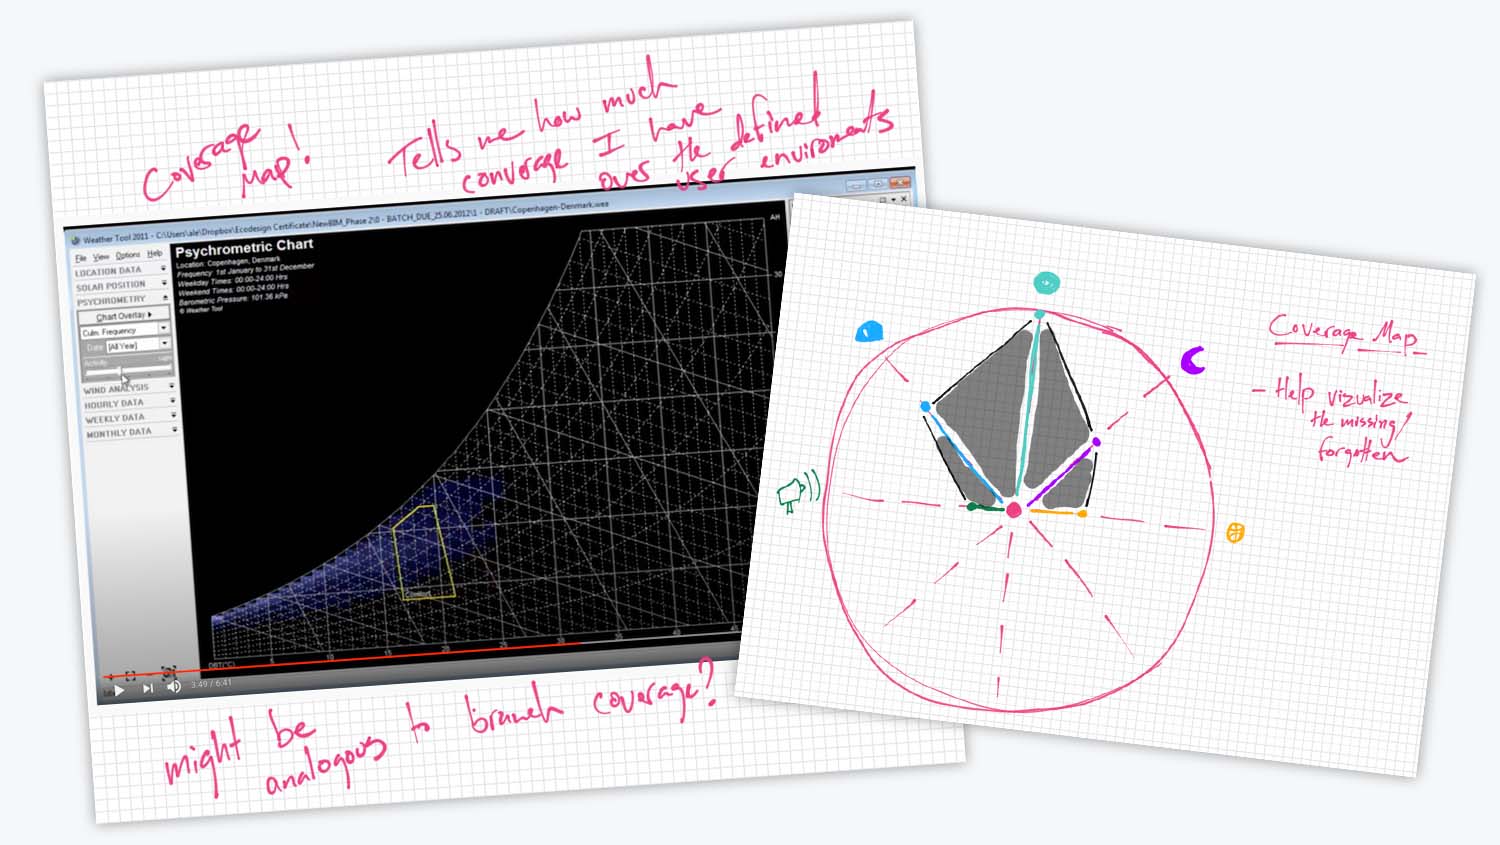 Coverage
Map!
Tells me how much
converage I have
over the defined
user enviroments
Weather Tool 2011 - C:\Users\ale\Dropbox\Ecodesign Certificate\NewBIM_Phase 2\0 - BATCH_DUE_25.06.2012\1 - DRAFT\Copenhagen-Denmark.wea
File View Options Help
LOCATION DATA
SOLAR POSITION
PSYCHROMETRY
Chart Overlay
Culm. Frequency
Date: [All Year]
Activity:
WIND ANALYSIS
HOURLY DATA
WEEKLY DATA
MONTHLY DATA
Psychrometric Chart
Location: Copenhagen, Denmark
Frequency: 1st January to 31st December
Weekday Times: 00:00-24:00 Hrs
Weekend Times: 00:00-24:00 Hrs
Barometric Pressure: 101.36 kPa
© Weather Tool
AH
30
Comfort
DBT(°C) 5 10 15 20 25 30 35 40 45
3:49 / 6:41
might be
analogous to branch coverage?
Coverage Map
- Help vizualize
the missing/
forgotten